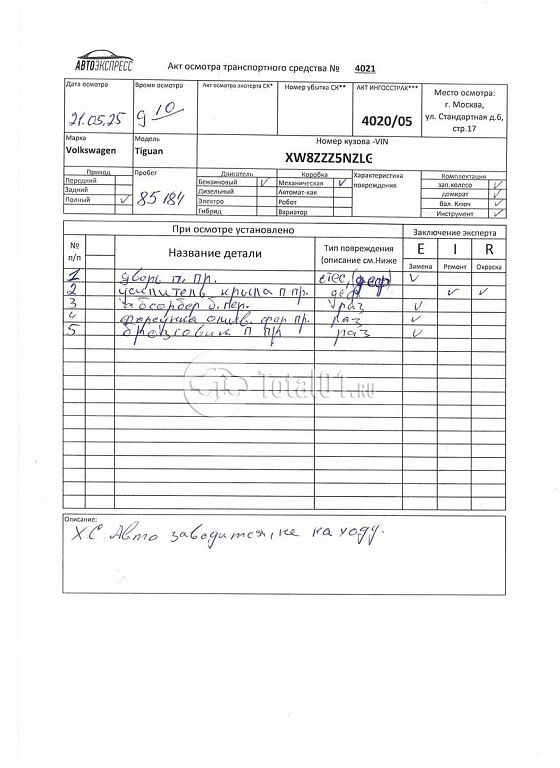 АВТОЭКСПРЕСС
Акт осмотра транспортного средства № 4021
Дата осмотра
21.05.25
Время осмотра
9 10
Акт осмотра эксперта СК*
Номер убытка СК**
АКТ ИНГОССТРАХ***
4020/05
Место осмотра:
г. Москва,
ул. Стандартная д.6,
стр.17
Марка
Volkswagen
Модель
Tiguan
Номер кузова -VIN
XW8ZZZ5NZLG
Привод
Передний
Задний
Полный ✓
Пробег
85184
Двигатель
Бензиновый ✓
Дизельный
Электро
Гибрид
Коробка
Механическая ✓
Автомат-кая
Робот
Вариатор
Характеристика
повреждения
Комплектация
зап.колесо ✓
домкрат ✓
бал. Ключ ✓
Инструмент ✓
При осмотре установлено
Заключение эксперта
№
п/п
Название детали
Тип повреждения
(описание см.Ниже
E I R
Замена Ремонт Окраска
1 дверь п. пр. ✓
2 усилитель крыла п пр. деф ✓ ✓
3 абсорбер б. пер. раз ✓
4 форсунка омыв. фар пр. раз ✓
5 брызговик п пр раз ✓
Total01.RU
Описание:
Х.С. Авто заводится, не на ходу.